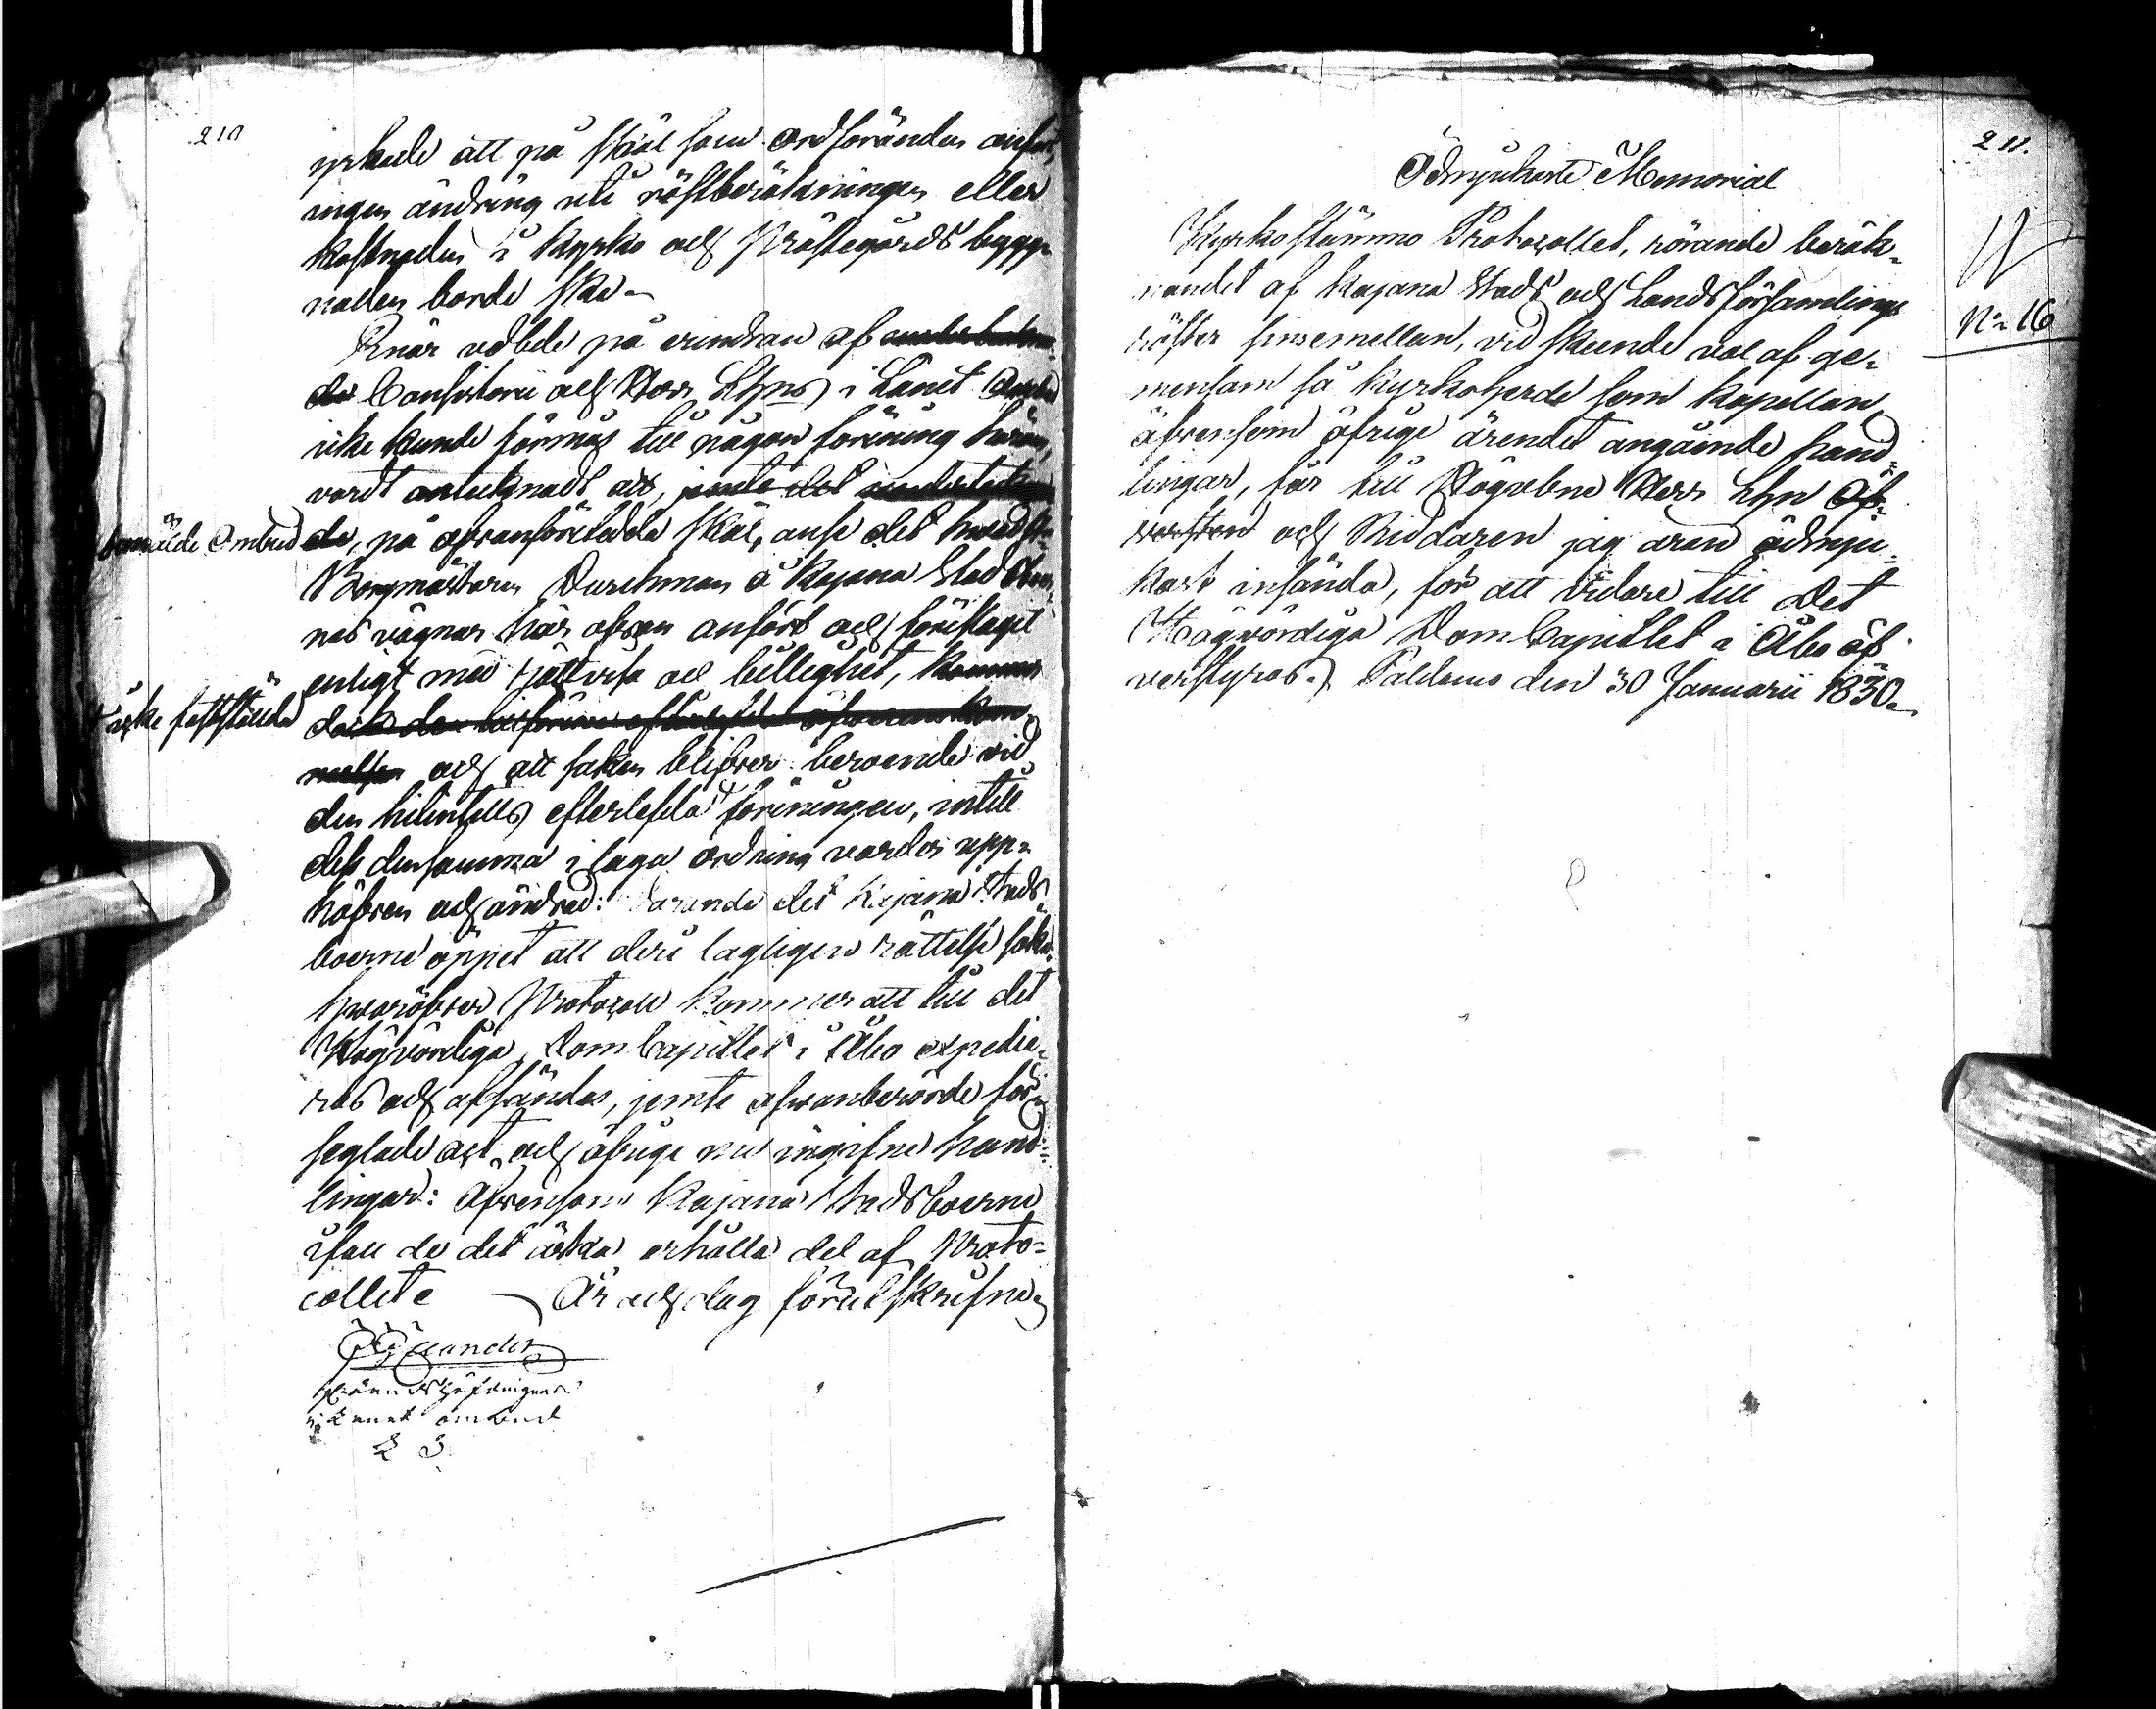 210
yrkade att på skäl som ordföranden anfört,
ingen ändring uti röstberäkningen eller
kostnaden i Kyrko och Prästegårds bygg-
naden borde ske.
Enär vdbde på erindran af
de Consistorii och Herr Lhns i Länet Ombud
icke kunde förmås till någon förening härom,
vardt antecknadt att, jemte det
bemälde Ombud
de, på ofvanförmeldte skäl, anse det hvad
Borgmästaren Durchman å Kajana Stadsboer-
nes vägnar här ofvan anfört och föreslagit
enligt med rättvisa och billighet,
icke fastställde
och att saken blifver beroende vid
den hitintills efterlefda föreningen, intill
dess densamma i laga ordning varder upp-
häfven och ändrad: varande det Kajana Stads
boerne öppet att deri lagligen rättelse söka:
hvaröfver Protocoll kommer att till det
Högvördiga DomCapitlet i Åbo expedie-
ras och afsändas, jemte ofvanberörde för-
seglade act och öfrige nu ingifne hand-
lingar: äfvensom Kajana Stadsboerne
ifall de det äska erhålla del af Proto-
collet. År och dag förut skrifne
211.
Ödmjukaste Memorial
No 16
Kyrkostämmo Protocollet, rörande beräk-
nandet af Kajana Stads och Landsförsamlings
röster sinsemellan, vid skeende val af ge-
mensam så Kyrkoherde som Kapellan,
äfvensom öfrige ärendet angående hand-
lingar, får till Högvelborne Herr Lhn Öf-
versten och Riddaren jag äran ödmju-
kast insända, för att vidare till Det
Högvördiga DomCapitlet i Åbo öf-
verstyras. Paldamo den 30 Januarii 1830.